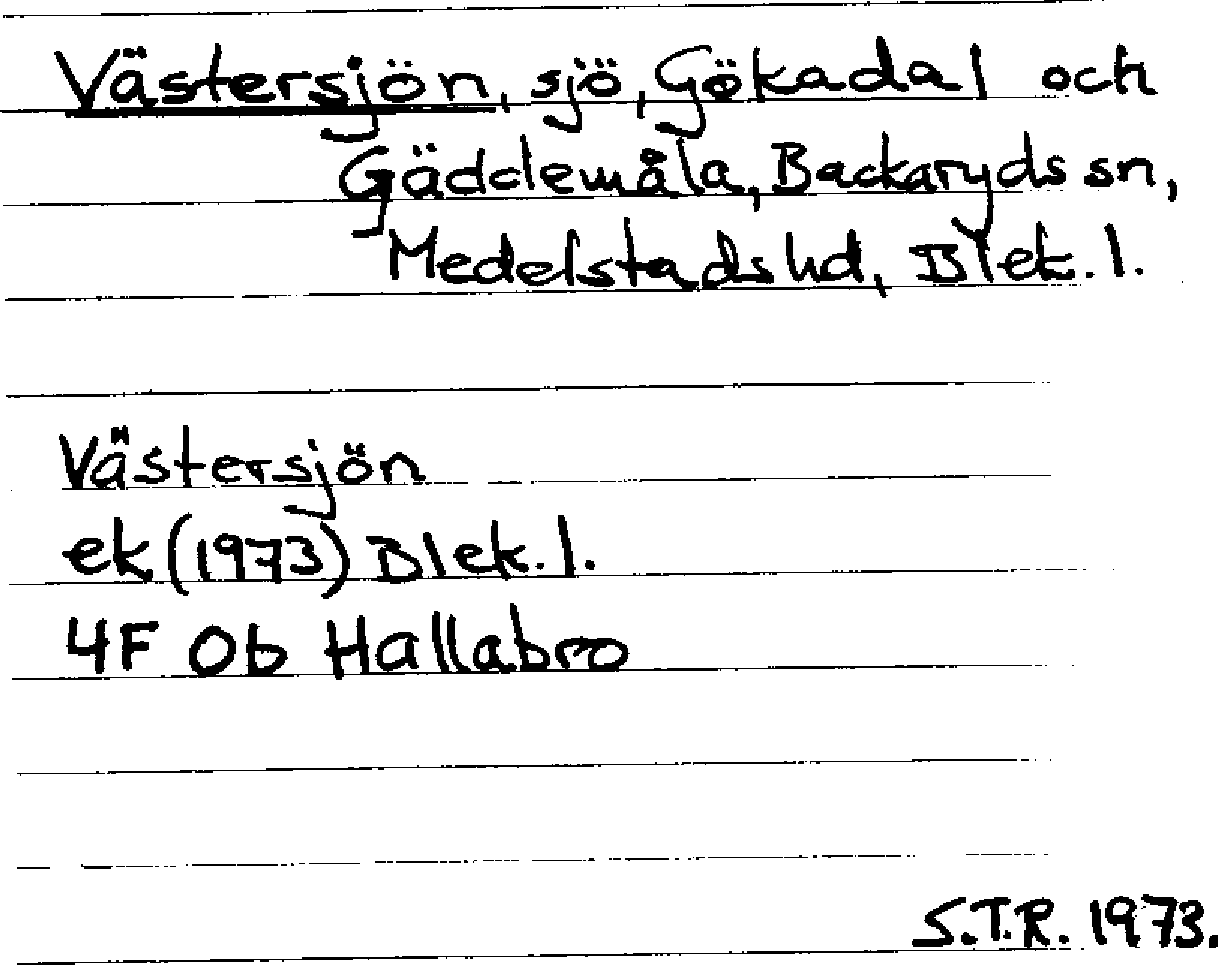 Västersjön, sjö, Gökadal och
Gäddemåla, Backaryds sn,
Medelstads hd, Blek. l.
Västersjön
ek (1973) Blek. l.
4F 0b Hallabro
S.T.R. 1973.